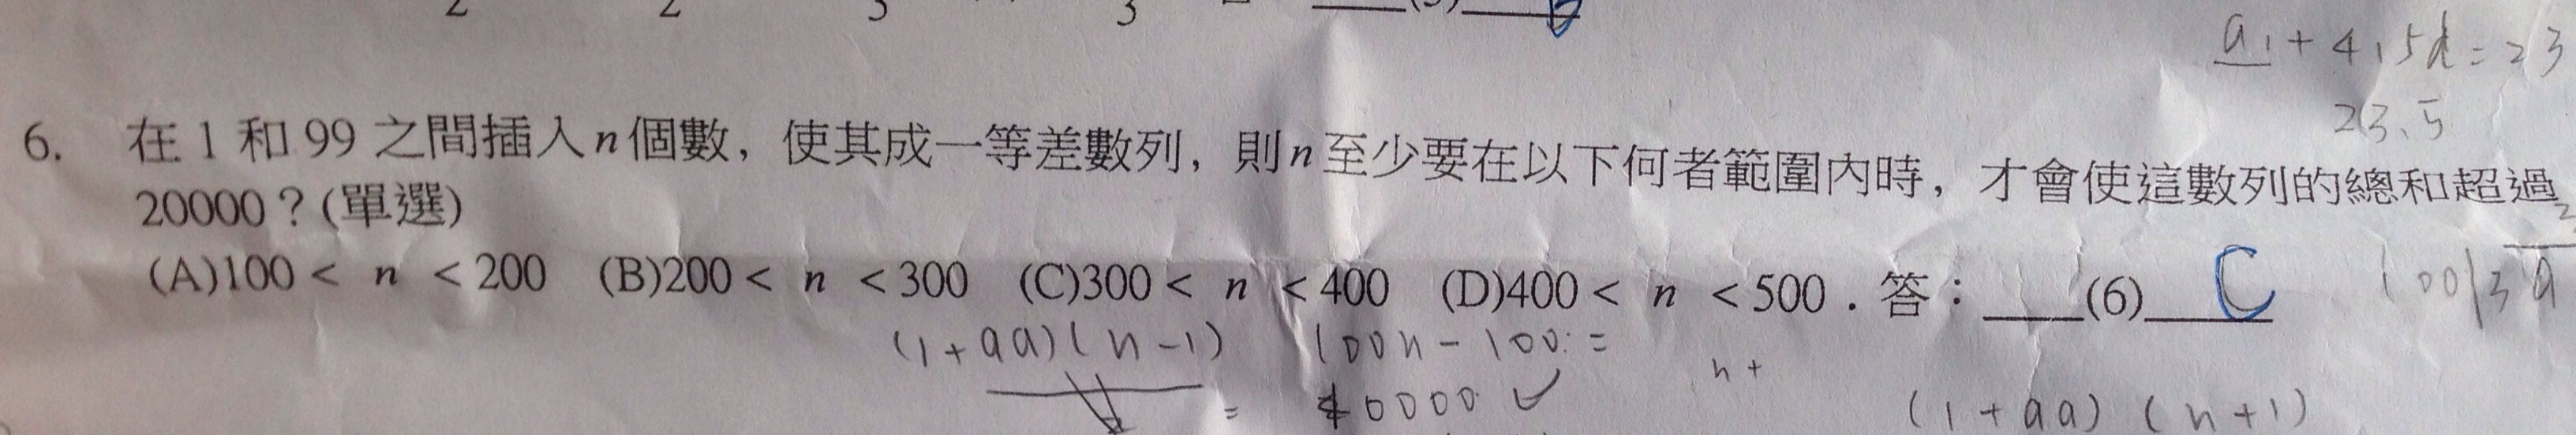 a₁ + 4.5d = 23
23.5
6. 在 1 和 99 之間插入 n 個數，使其成一等差數列，則 n 至少要在以下何者範圍內時，才會使這數列的總和超過
20000？(單選)
(A)100 < n < 200 (B)200 < n < 300 (C)300 < n < 400 (D)400 < n < 500．答：____(6) C
(1+99)(n-1) 100n - 100 =
= 40000 ✓
n +
(1+99) (n+1)